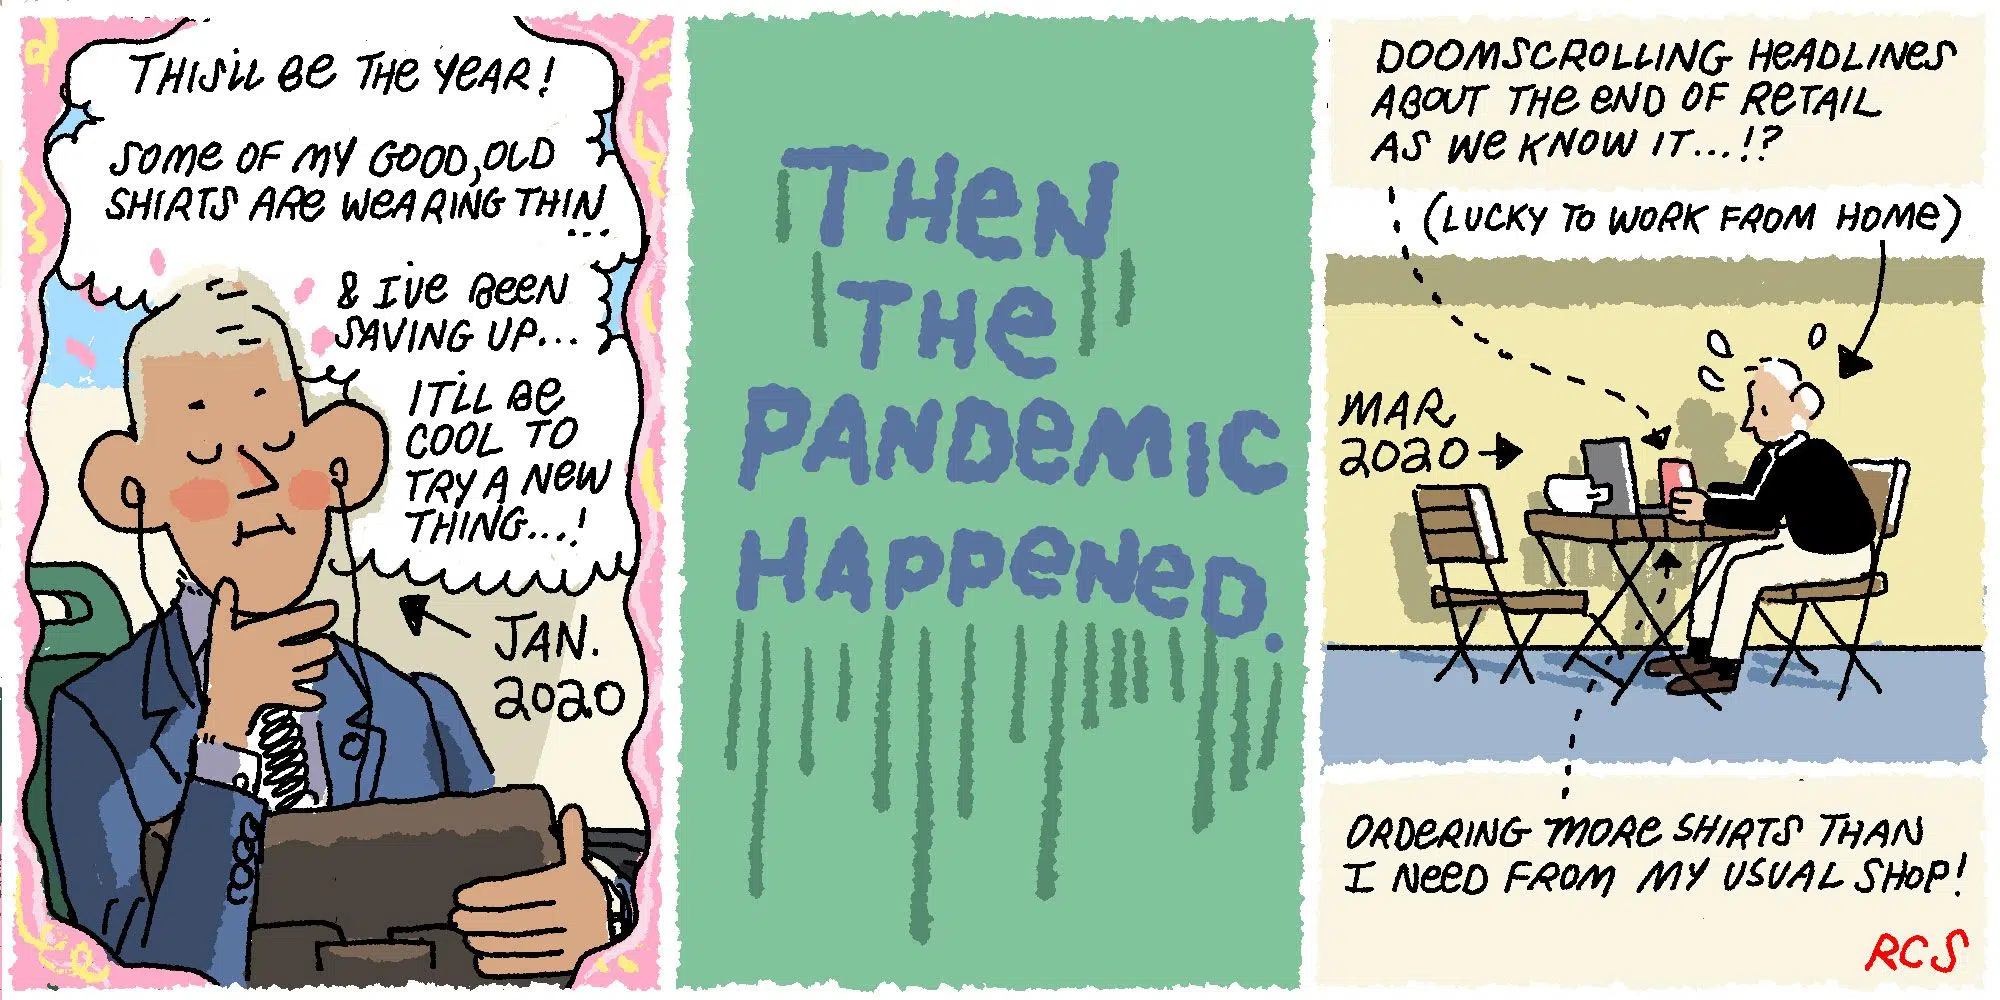 THIS'LL BE THE YEAR!
SOME OF MY GOOD, OLD
SHIRTS ARE WEARING THIN
...
& I'VE BEEN
SAVING UP...
IT'LL BE
COOL TO
TRY A NEW
THING...!
JAN.
2020
THEN
THE
PANDEMIC
HAPPENED.
DOOMSCROLLING HEADLINES
ABOUT THE END OF RETAIL
AS WE KNOW IT...!?
(LUCKY TO WORK FROM HOME)
MAR
2020
ORDERING MORE SHIRTS THAN
I NEED FROM MY USUAL SHOP!
RCS